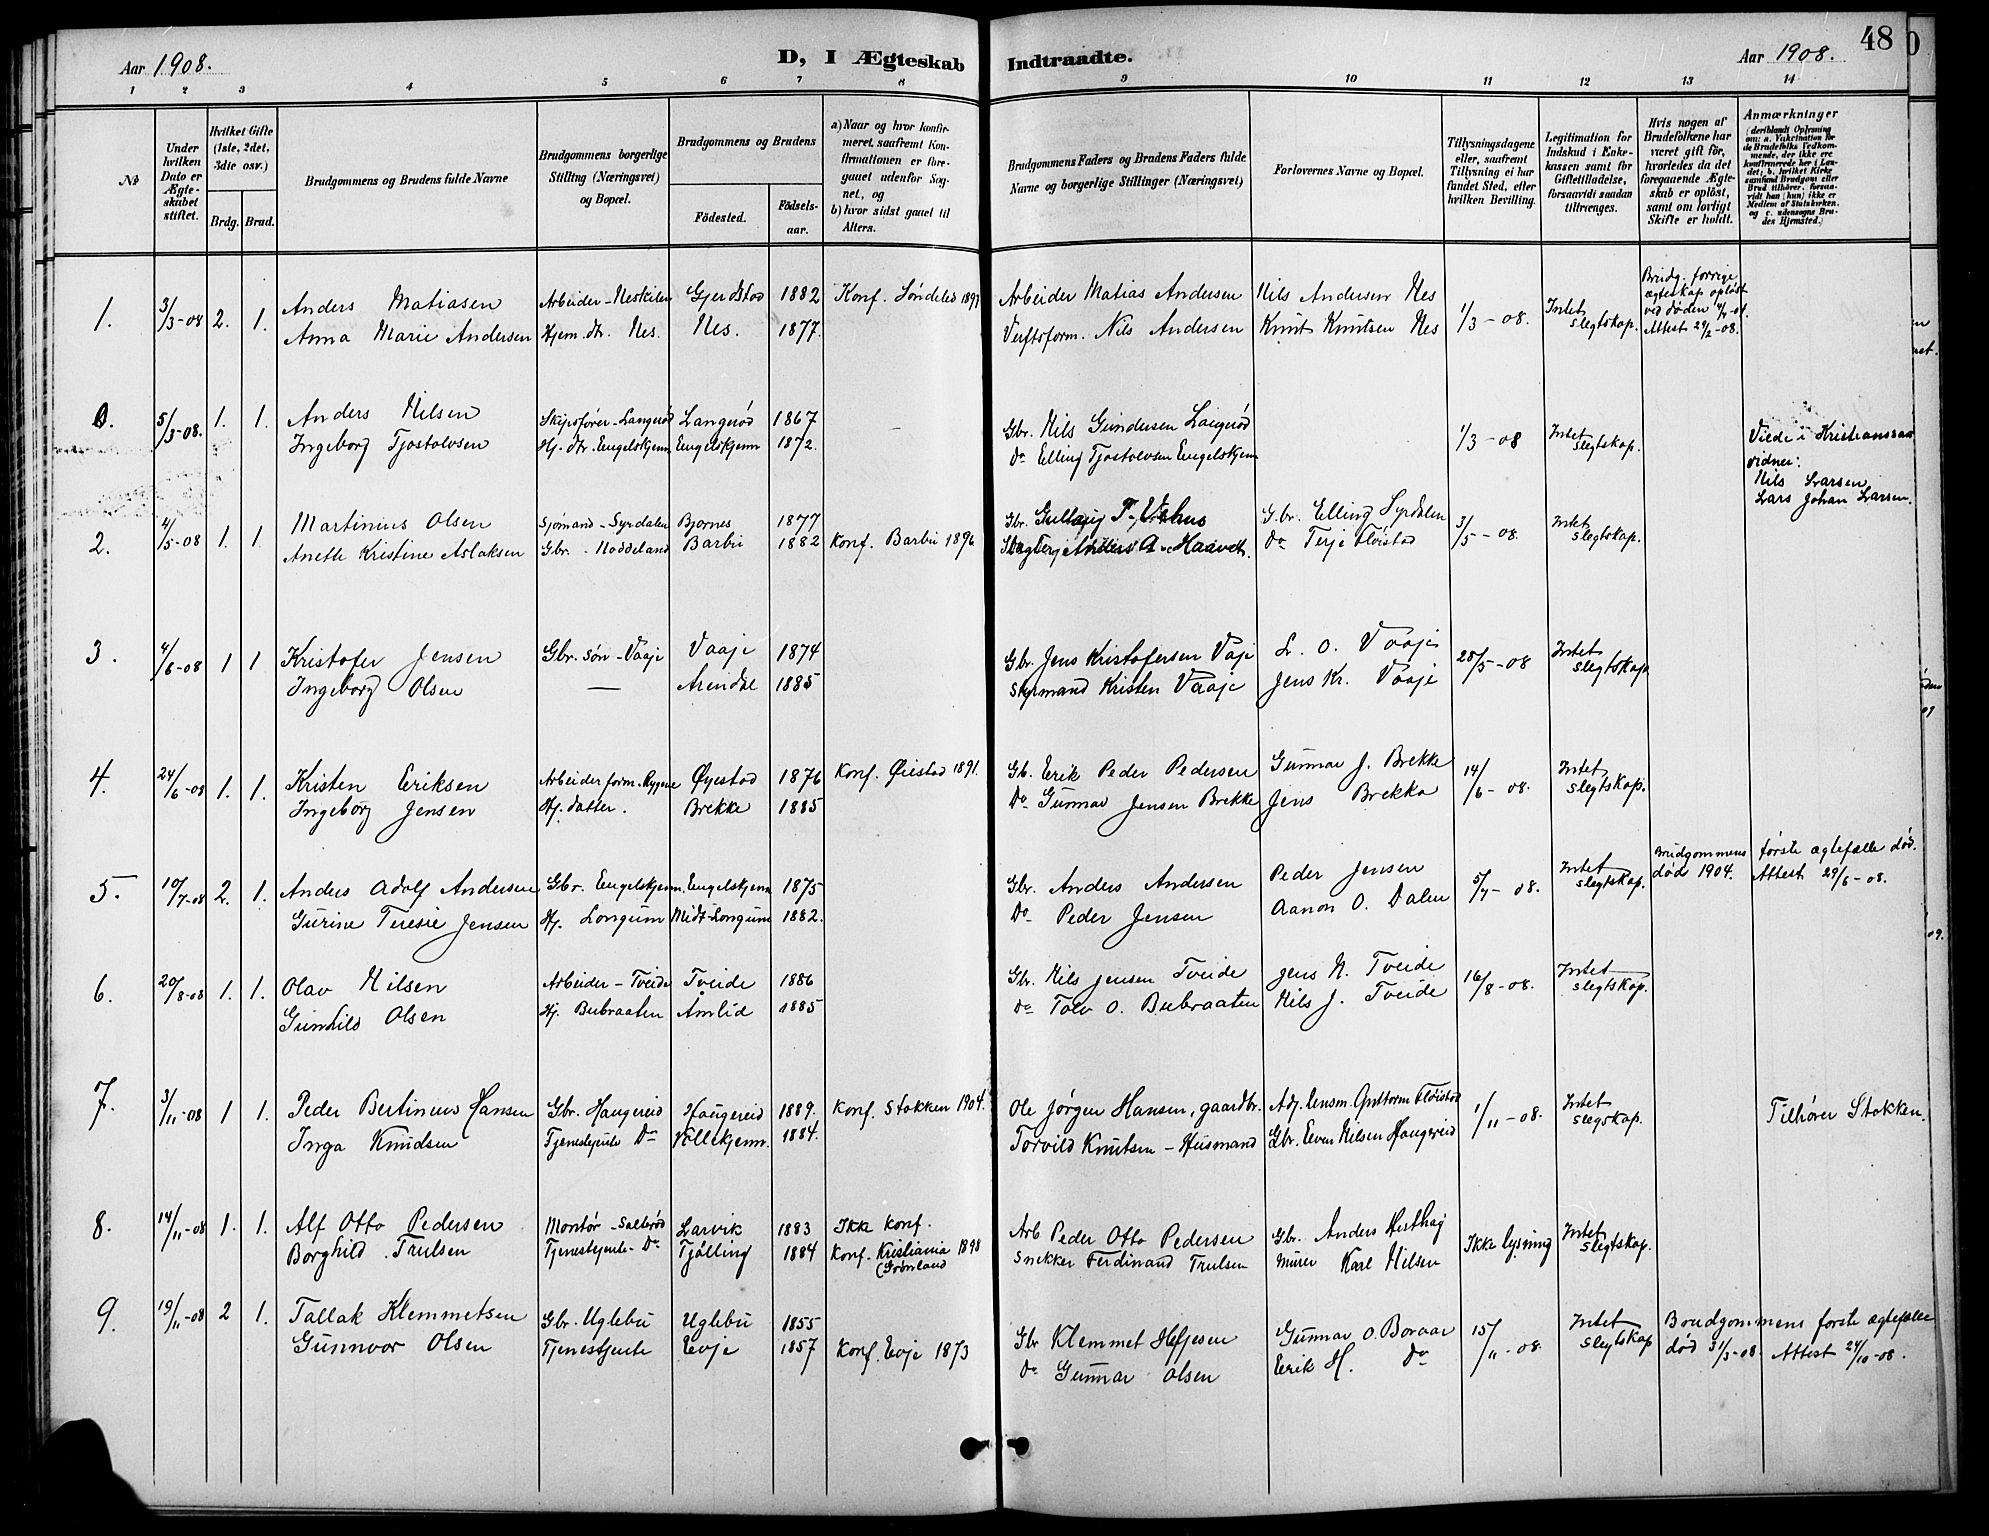 Aar 1908. D, I Ægteskab Indtraadte. Aar 1908. 48
1 2 3 4 5 6 7 8 9 10 11 12 13 14
No
Under hvilken Dato er Ægteskabet stiftet.
Hvilket Gifte (1ste, 2det, 3die osv.)
Brdg. Brud.
Brudgommens og Brudens fulde Navne
Brudgommens borgerlige Stilling (Næringsvei) og Bopæl.
Brudgommens og Brudens
Födested. Födselsaar.
a) Naar og hvor konfirmeret, saafremt Konfirmationen er foregaaet udenfor Sognet, og
b) hvor sidst gaaet til Alters.
Brudgommens Faders og Brudens Faders fulde Navne og borgerlige Stillinger (Næringsvei)
Forlovernes Navne og Bopæl.
Tillysningsdagene eller, saafremt Tillysning ei har fundet Sted, efter hvilken Bevilling.
Legitimation for Indskud i Enkekassen samt for Giftetilladelse, forsaavidt saadan tiltrænges.
Hvis nogen af Brudefolkene har været gift för, hvorledes da det foregaaende Ægteskab er oplöst, samt om lovligt Skifte er holdt.
Anmærkninger (deriblandt Oplysning om: a. Vakcination for de Brudefolks Vedkommende, der ikke ere konfirmerede her i Landet; b. hvilket Kirkesamfund Brudgom eller Brud tilhører, forsaavidt han (hun) ikke er Medlem af Statskirken, og c. udensogns Brudes Hjemsted.)
1. 3/3-08 2. 1. Anders Matiasen Arbeider - Neskilen Gjerdstad 1882 Konf. Søndeled 1897 Arbeider Matias Andersen Nils Andersen Nes 1/3-08. Intet slegtskap. Brudg. forrige ægteskap opløst ved døden Attest 29/2-08.
Anna Marie Andersen Hjem. dtr. Nes. Nes. 1877. Verftsform. Nils Andersen Knut Knutsen Nes
0. 5/3-08. 1. 1. Anders Nilsen Skipsfører - Langerød Langerød 1867 Gbr. Nils Gundersen Langerød 1/3-08 Intet slegtskap. Viede i Kristianssan
Ingeborg Tjostolvsen Hj. dtr. Engelskjenn Engelskjenn 1872. Do Elling Tjostolvsen Engelskjenn vidner:
Nils Larsen
Lars Johan Larsen.
2. 4/5-08 1. 1. Martinius Olsen Sjømand - Syrdalen Bjornes 1877 Gbr. G. br. Elling Syrdalen 3/5-08. Intet slegtskap.
Anette Kristine Aslaksen Gbr. - Noddeland Barbu 1882 Konf. Barbu 1896 Do Terje Fløistad
3. 4/6-08 1 1 Kristofer Jensen Gbr. søn - Vaaje Vaaje 1874 Gbr. Jens Kristofersen Vaje L. O. Vaaje 28/5-08 Intet slegtskap
Ingeborg Olsen — Arendal 1885 Styrmand Kristen Vaaje Jens Kr. Vaaje
4. 24/6-08 1. 1. Kristen Eriksen Arbeiderform. - Rygene Øyestad 1876 Konf. Øiestad 1891. Gb. Erik Peder Pedersen Gunnar J. Brekke 14/6-08. Intet slegtskap.
Ingeborg Jensen Hj. datter. Brekke 1885 Do Gunnar Jensen Brekke Jens Brekka
5. 10/7-08 2. 1. Anders Adolf Andersen Gbr. Engelskjenn. Engelskjenn 1875 Gbr. Anders Andersen Peder Jensen 5/7-08. Intet slegtskap. Brudgommens første egtefælle død.
død 1904. Attest 29/6-08.
Gurine Teresie Jensen Hj. Longum Midt-Longum 1882. Do Peder Jensen Aanon O. Dalen
6. 20/8-08 1. 1. Olav Nilsen Arbeider - Tveide Tveide 1886 Gbr. Nils Jensen Tveide Jens N. Tveide 16/8-08. Intet slegtskap.
Gunhild Olsen Hj. Bubraaten Åmlid 1885 Do Tolv O. Bubraaten Nils J. Tveide
7. 3/11-08 1 1. Peder Bertineus Hansen Gbr. Haugereid Haugereid 1889. Konf. Stokken 1904. Ole Jørgen Hansen, gaardbr. Adj. Lensm. Guttorm Fløistad 1/11-08. Intet slegskap. Tilhører Stokken.
Inga Knudsen Tjenestejente Do 1884. Torvild Knutsen - Husmand Gbr. Even Nilsen Haugereid
8. 14/11-08 1. 1. Alf Otto Pedersen Montør - Salterød Larvik 1883 Ikke konf. Arb Peder Otto Pedersen Gbr. Anders Hesthag Ikke lysning Intet slegtskap.
Borghild Trulsen Tjenestejente - Do Tjølling 1884 Konf. Kristiania 1898 (Grønland Snekker Ferdinand Trulsen Murer Karl Nilsen
9. 19/11-08 2 1. Tallak Klemmetsen Gbr. Uglebu Uglebu 1855 Gbr Klemmet Gunnar O. Boraas 15/11-08. Intet slegtskap Brudgommens første egtefælle
død 31/3-08. Attest 24/10-08.
Gunnvor Olsen Tjenestjente Evje 1857 Konf. Evje 1873 Do Gunnar Olsen Eerik H. Do